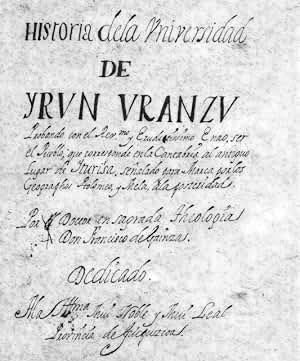 HISTORIA dela Vniversidad
DE
YRVN VRANZV
Probando con el Rev.mo y Eruditissimo Enao, ser
el Pueblo, que corresponde en la Cantabria al antiguo
Lugar de Yturisa, señalado para Marca por los
Geographos Ptolomeo, y Mela, à la posteridad.
Por el Doctor en sagrada Theologia
Don Francisco de Gainza.
Dedicado.
A la Ittma. Mui Noble y Mui Leal
Provincia de Guipuzcoa.